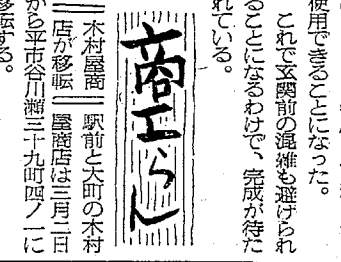 使用できることになった。
これで玄関前の混雑も避けられ
ることになるわけで、完成が待た
れている。
商工らん
木村屋商
店が移転
駅前と大町の木村
屋商店は三月二日
から平市谷川瀬三十九町四ノ一に
移転する。